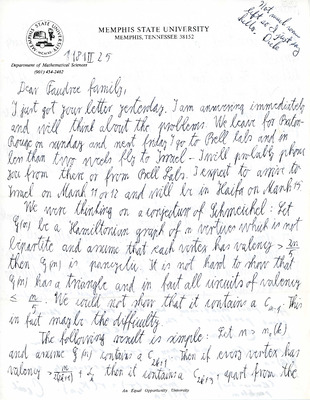 MEMPHIS STATE UNIVERSITY
MEMPHIS, TENNESSEE 38152
Department of Mathematical Sciences
(901) 454-2482
1981 II 25
Dear Faudree family,
I just got your letter yesterday. I am answering immediately
and will think about the problems. We leave for Baton-
Rouge on sunday and next friday I go to Bell Labs and in
less than two weeks fly to Israel - I will probably phone
you from there or from Bell Labs. I expect to arrive to
Israel on March 11 or 12 and will be in Haifa on March 15
We were thinking on a conjecture of : Let
G(n) be a Hamiltonian graph of n vertices which is not
bipartite and assume that each vertex has valency > 2n/5
then G(n) is pancyclic. It is not hard to show that
G(n) has a triangle and in fact all circuits of valency
≤ . We could not show that it contains a C n-1. This
in fact may be the difficulty.
The following result is simple: Let n > n₀(k)
and assume G(n) contains a C 2k+1 then if every vertex has
valency > then it contains a C 2k+3, apart from the
An Equal Opportunity University